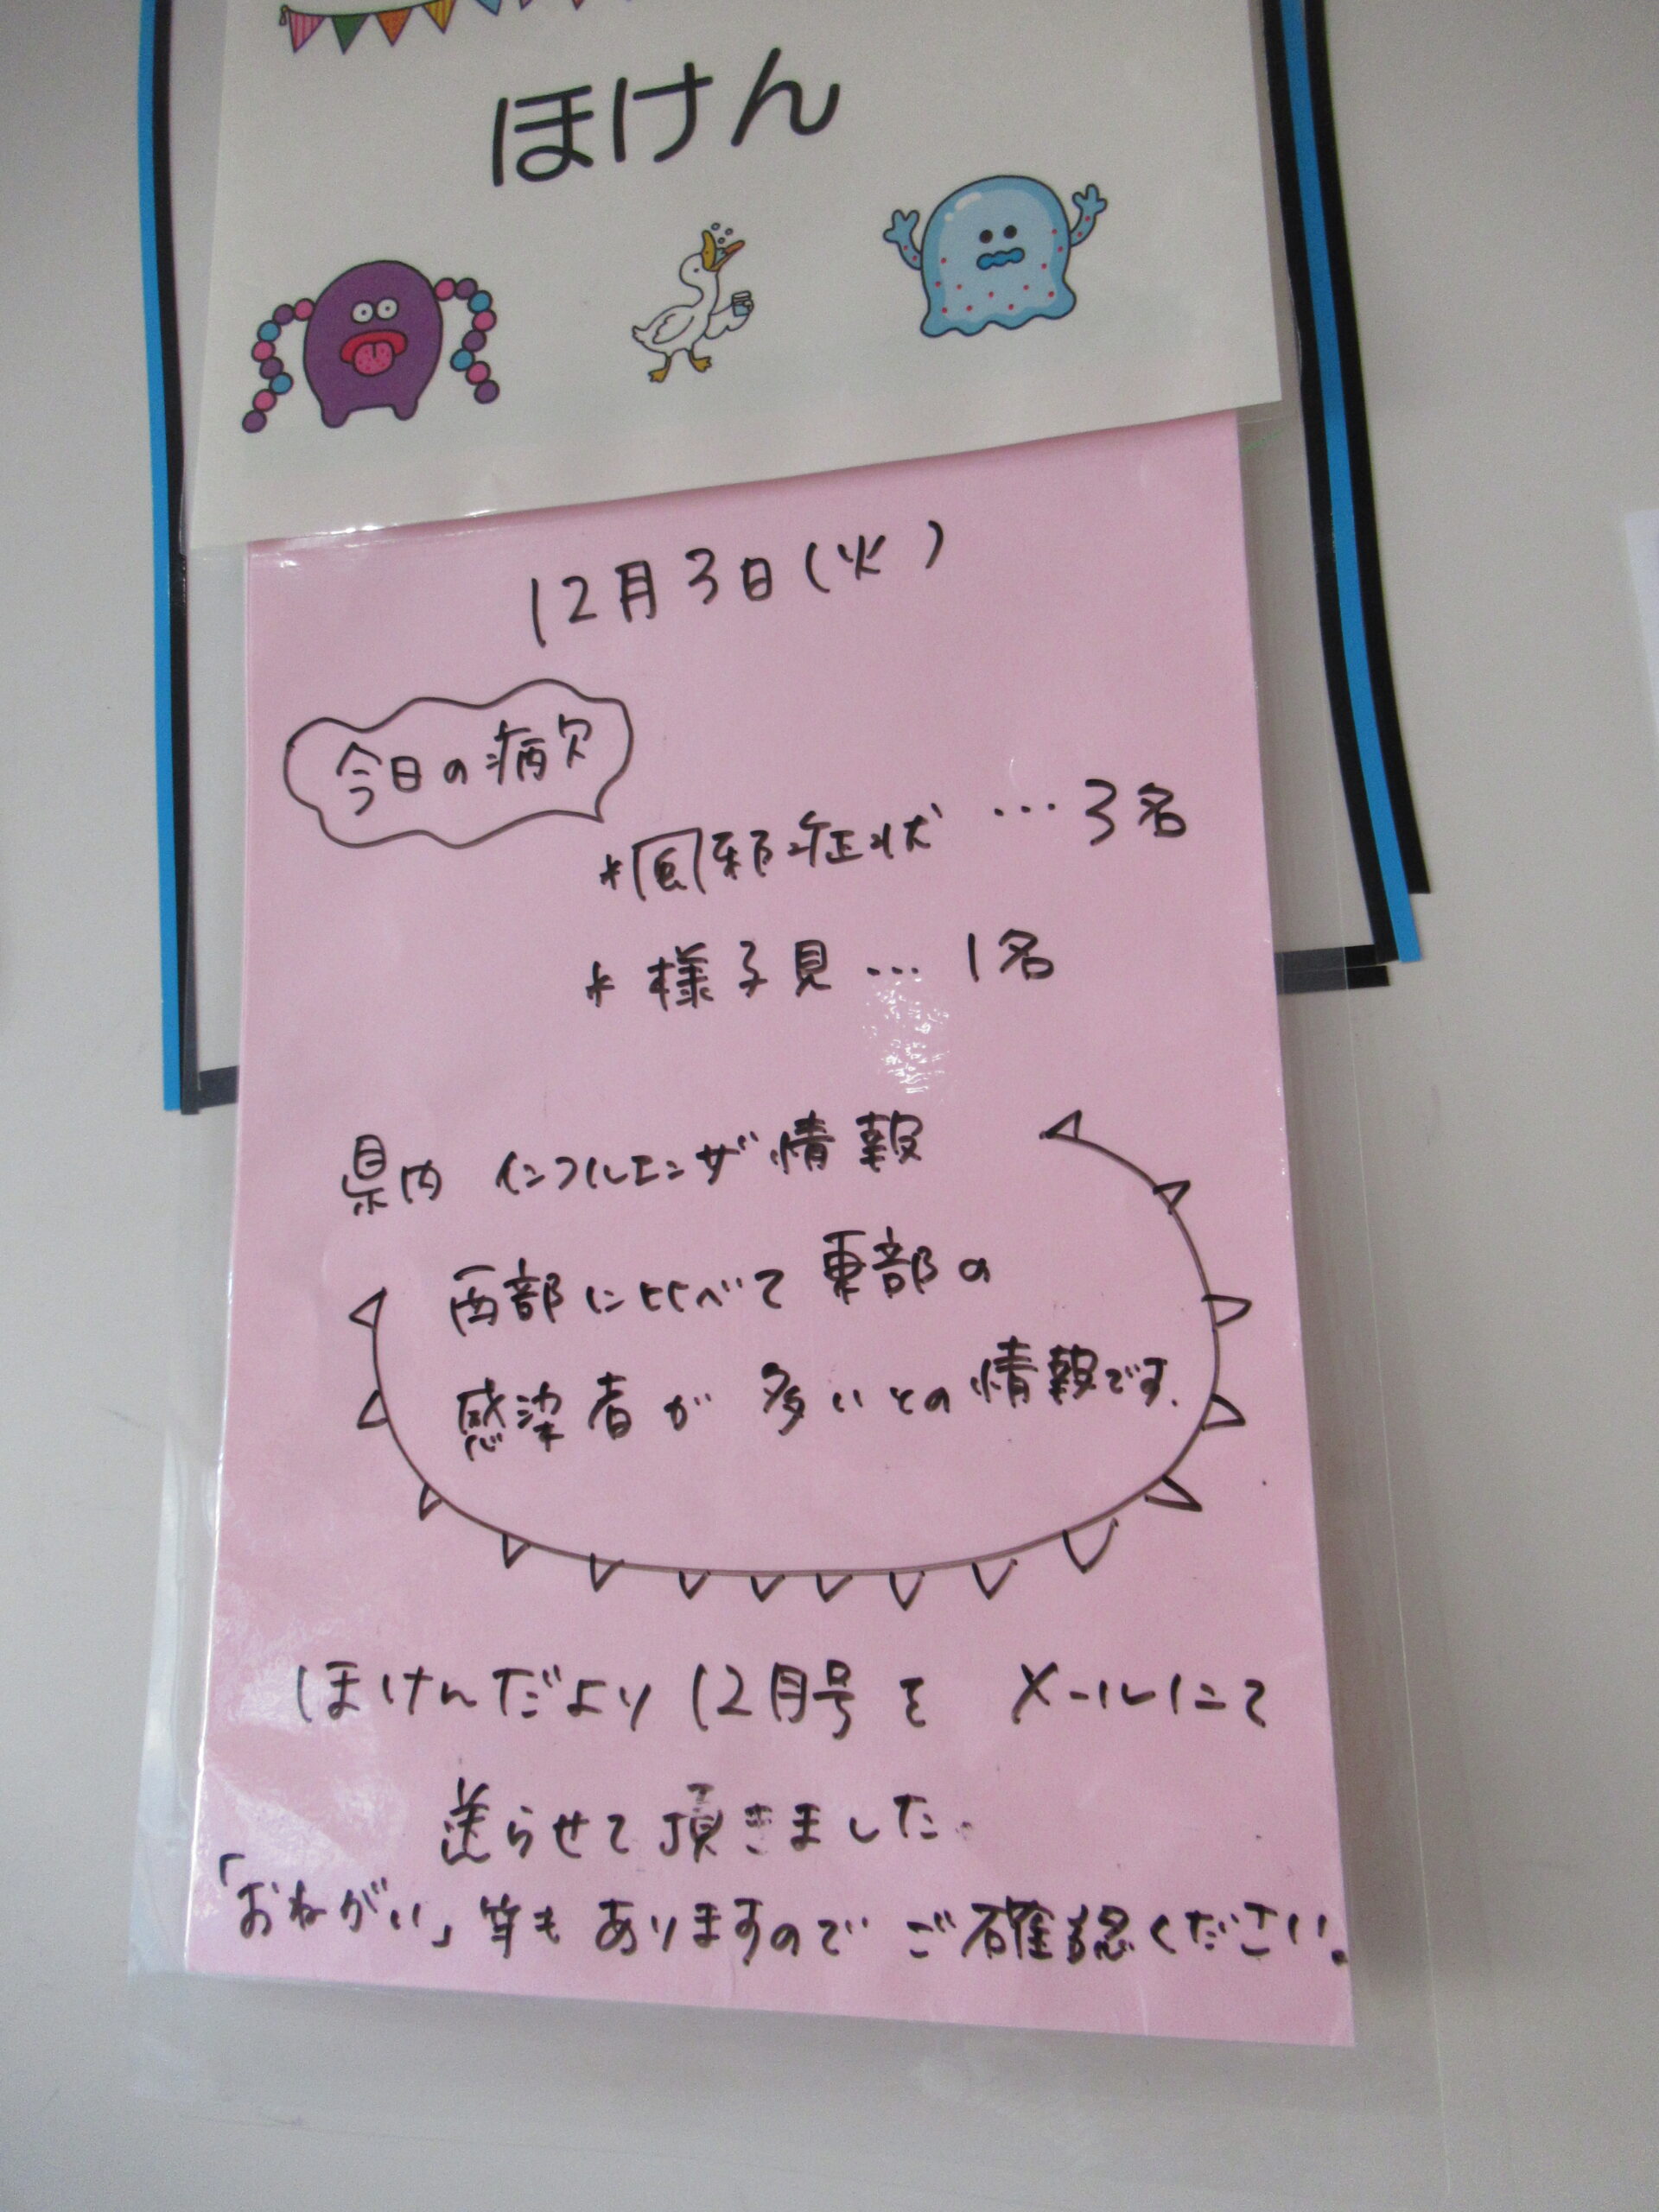 ほけん
12月3日(火)
今日の病欠
*風邪症状…3名
*様子見…1名
県内 インフルエンザ情報
西部に比べて東部の
感染者が多いとの情報です.
ほけんだより12月号を メールにて
送らせて頂きました。
「おねがい」等もありますのでご確認ください。